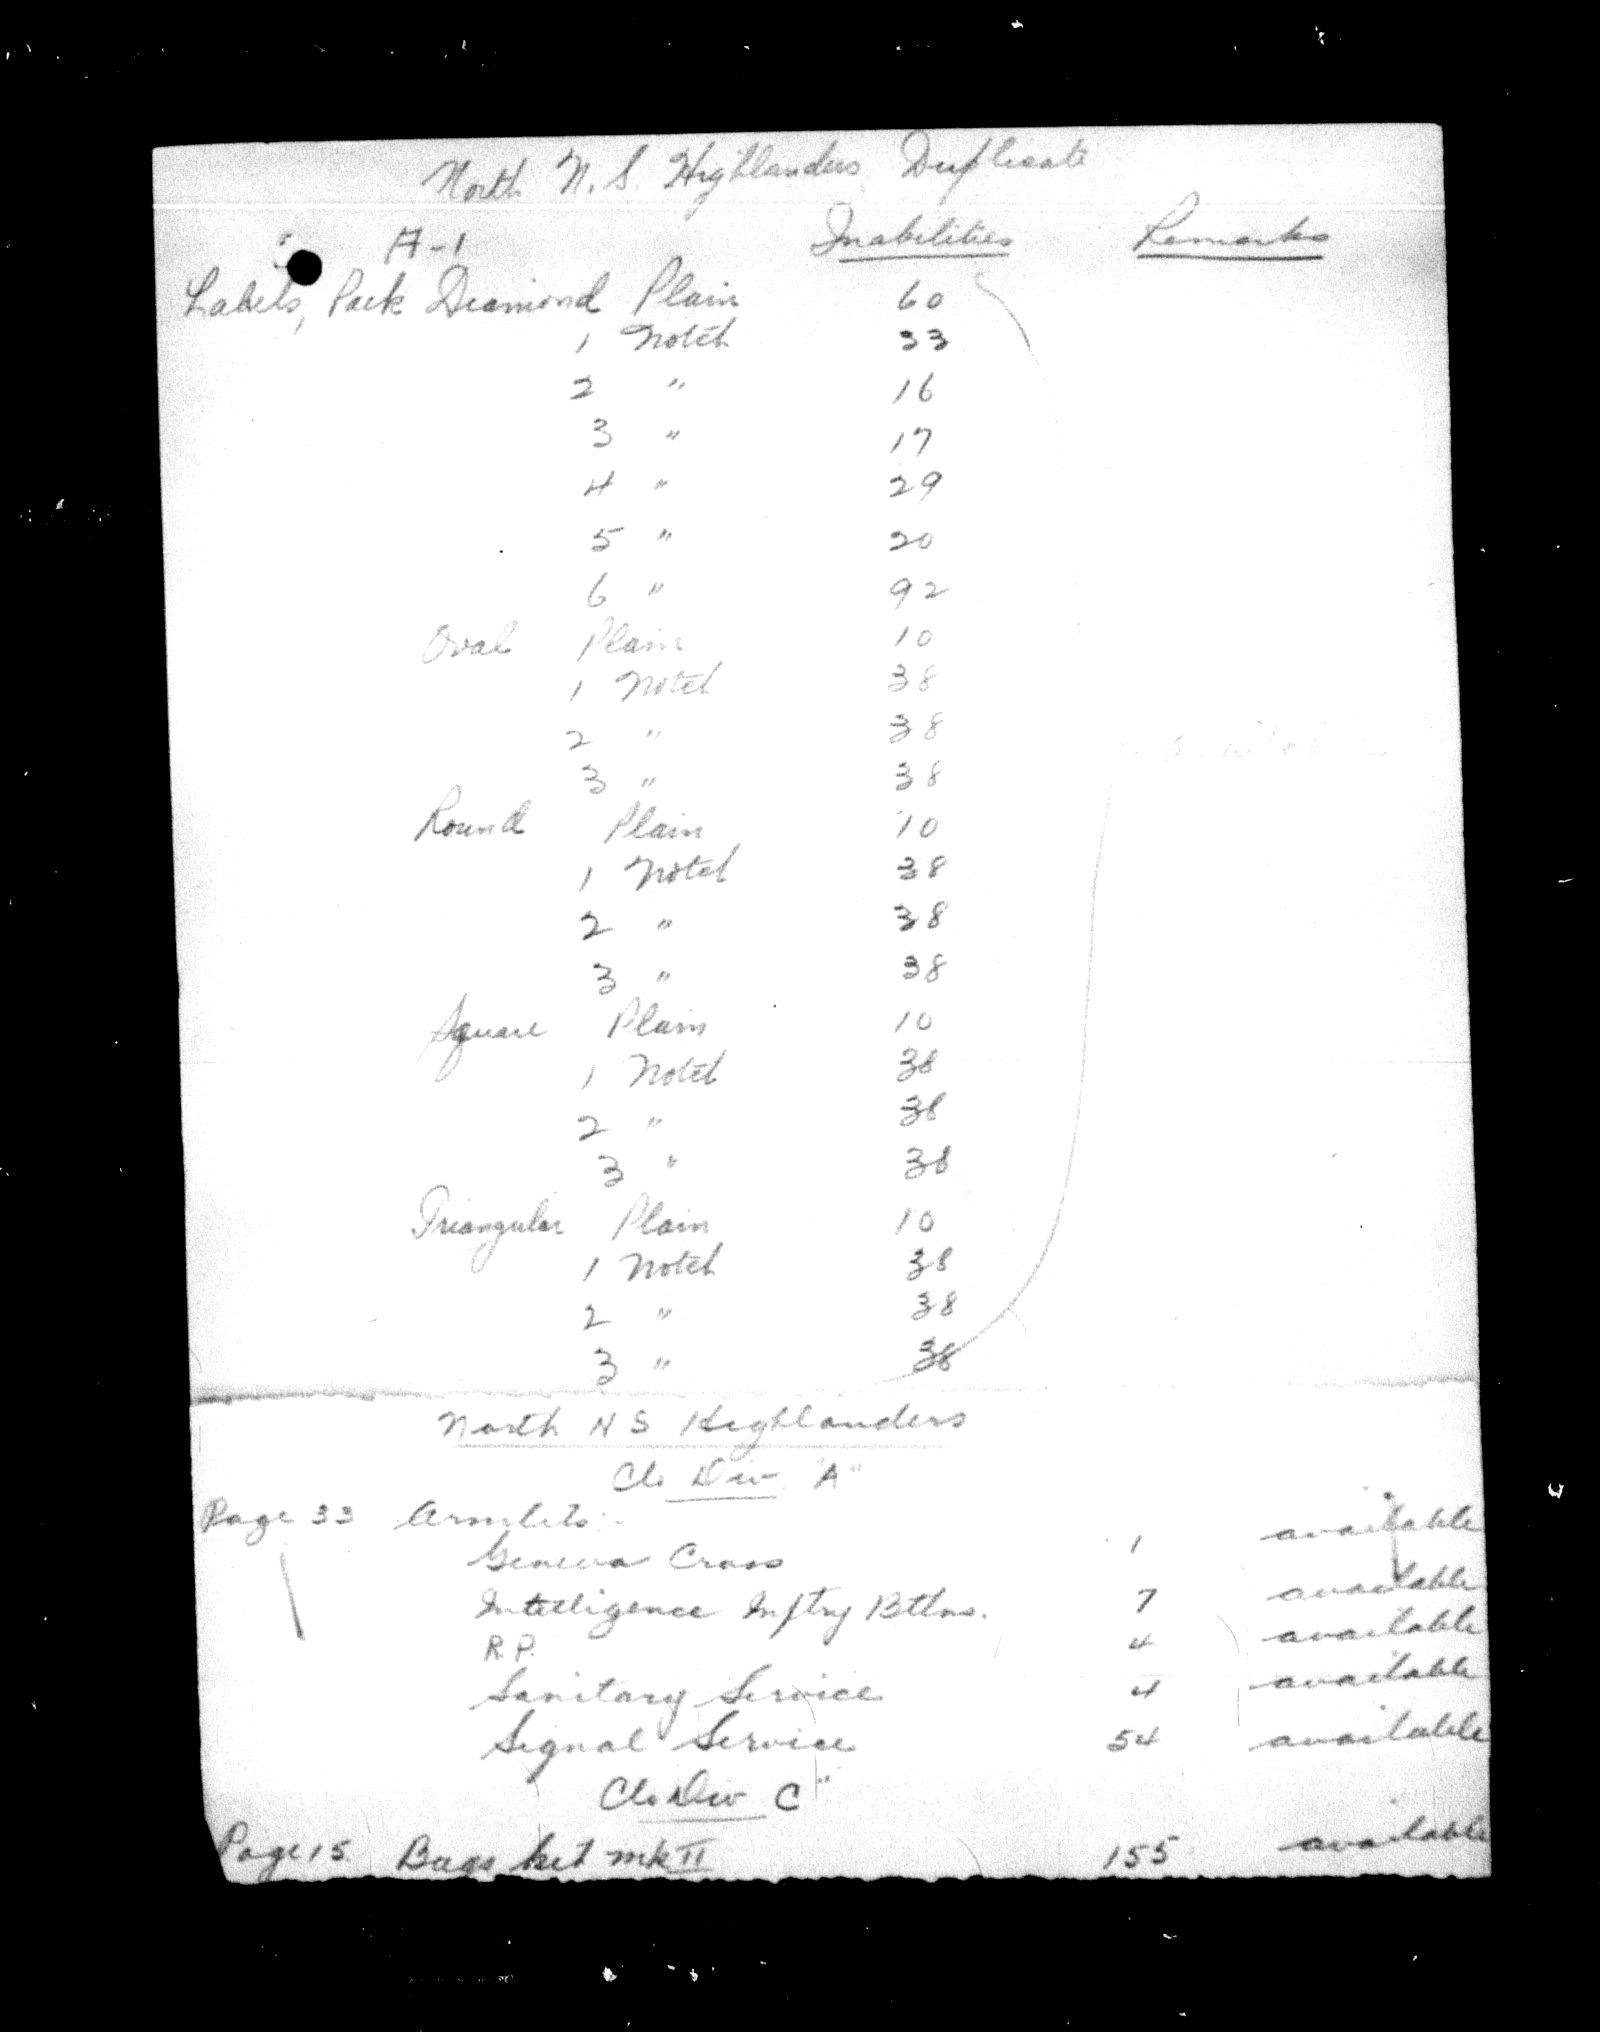 North N.S. Highlanders Duplicate
A-1 Inabilities Remarks
Labels, Pack Diamond Plain 60
1 Notch 33
2 " 16
3 " 17
4 " 29
5 " 20
6 " 92
Oval Plain 10
1 Notch 38
2 " 38
3 " 38
Round Plain 10
1 Notch 38
2 " 38
3 " 38
Square Plain 10
1 Notch 38
2 " 38
3 " 38
Triangular Plain 10
1 Notch 38
2 " 38
3 " 38
North N S Highlanders
Cl. Div. "A"
Page 33 Armlets:-
Geneva Cross 1 available
Intelligence Inftry Btlns. 7 available
R.P. 4 available
Sanitary Service 4 available
Signal Service 54 available
Cl. Div C"
Page 15 Bags kit mk II 155 available